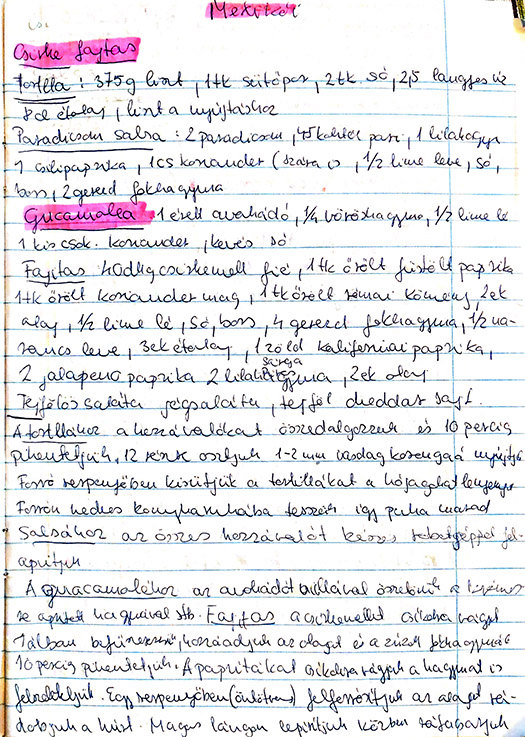 Mexikói
Csirke fajitas
Tortilla : 375 g liszt, 1 tk sütőpor, 2 tk. só, 2,5 langyos víz
8 cl étolaj, liszt a nyújtáshoz
Paradicsom salsa : 2 paradicsom, koktél pari, 1 lilahagyma
1 csilipaprika, 1 cs koriander (szára is, 1/2 lime leve, só,
bors, 2 gerezd fokhagyma
Gucamolea 1 érett avokádó, 1/4 vöröshagyma, 1/2 lime lé
1 kis csok. koriander, kevés só
Fajitas csirkemell filé, 1 tk őrölt füstölt paprika
1 tk őrölt koriander mag, 1 tk őrölt római kömény, 2 ek
olaj, 1/2 lime lé, só, bors, 4 gerezd fokhagyma, 1/2 na-
rancs leve, 3 ek étolaj, 1 zöld kaliforniai paprika,
sárga
2 jalapeno paprika 2 lilahagyma, 2 ek olaj
Tejfölös saláta jégsaláta, tejföl cheddar sajt.
A tortillához a hozzávalókat összedolgozzuk és 10 percig
pihentetjük, 12 részre osztjuk 1-2 mm vastag koronggá nyújtju
Forró serpenyőben kisütjük a tortillákat a
Forrón nedves konyharuhába tesszük így puha marad
Salsához az összes hozzávalót késes robotgéppel fel-
aprítjuk
A guacamoléhoz az avokádót villával össze a
re aprított hagymával stb. Fajitas a csirkemellet csíkokra vágjuk
Tálban befűszerezzük, hozzáadjuk az olajat és a zúzott fokhagymát
10 percig pihentetjük. A paprikákat csíkokra vágjuk a hagymát is
feldaraboljuk. Egy serpenyőben (öntöttvas) felforrósítjuk az olajat rá-
dobjuk a húst. Magas lángon lepirítjuk közben